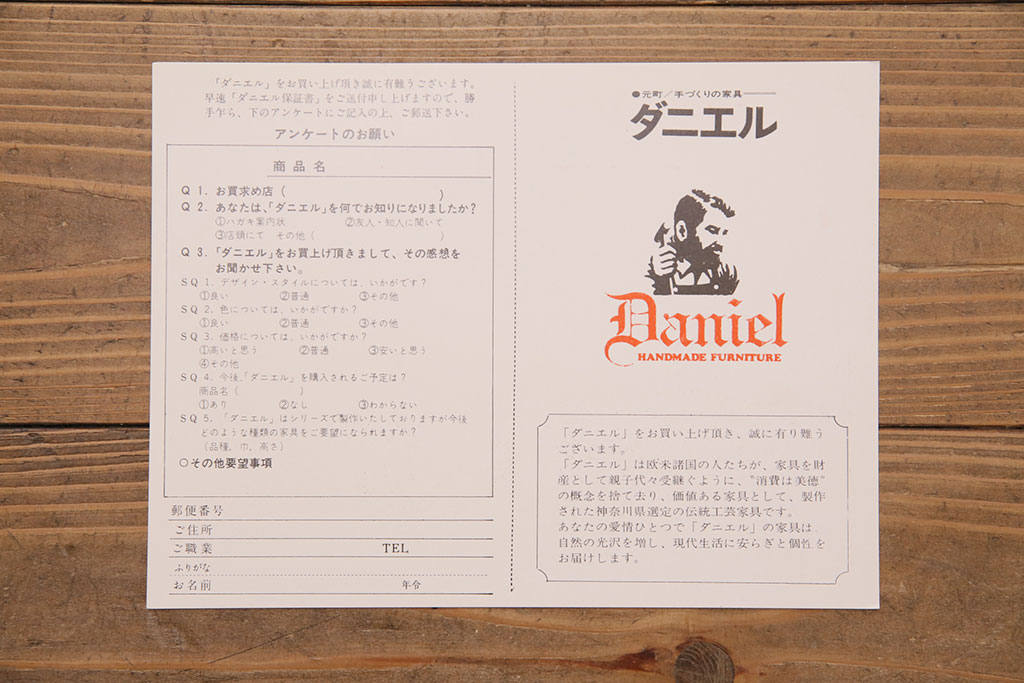 「ダニエル」をお買い上げ頂き誠に有難うございます。
早速「ダニエル保証書」をご送付申し上げますので、勝
手乍ら、下のアンケートにご記入の上、ご郵送下さい。
アンケートのお願い
商品名
Q 1. お買求め店 ( )
Q 2. あなたは、「ダニエル」を何でお知りになりましたか?
①ハガキ案内状 ②友人・知人に聞いて
③店頭にて その他 ( )
Q 3. 「ダニエル」をお買上げ頂きまして、その感想を
お聞かせ下さい。
SQ 1. デザイン・スタイルについては、いかがです?
①良い ②普通 ③その他
SQ 2. 色については、いかがですか?
①良い ②普通 ③その他
SQ 3. 価格については、いかがですか?
①高いと思う ②普通 ③安いと思う
④その他
SQ 4. 今後、「ダニエル」を購入されるご予定は?
商品名 ( )
①あり ②なし ③わからない
SQ 5. 「ダニエル」はシリーズで製作いたしておりますが今後
どのような種類の家具をご要望になられますか?
(品種、巾、高さ)
○その他要望事項
郵便番号
ご住所
ご職業 TEL
ふりがな
お名前 年令
●元町/手づくりの家具
ダニエル
Daniel
HANDMADE FURNITURE
「ダニエル」をお買い上げ頂き、誠に有り難う
ございます。
「ダニエル」は欧米諸国の人たちが、家具を財
産として親子代々受継ぐように、"消費は美徳"
の概念を捨て去り、価値ある家具として、製作
された神奈川県選定の伝統工芸家具です。
あなたの愛情ひとつで「ダニエル」の家具は、
自然の光沢を増し、現代生活に安らぎと個性を
お届けします。